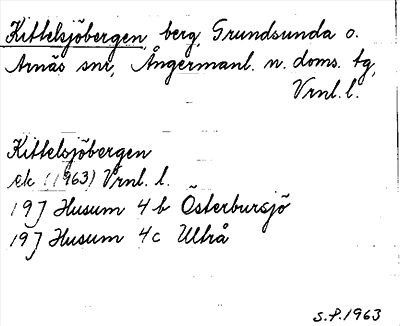 Kittelsjöbergen, berg, Grundsunda o.
Arnäs snr, Ångermanl. n. doms. tg,
Vrnl. l.
Kittelsjöbergen
ek (1963) Vrnl. l.
19J Husum 4b Österbursjö
19J Husum 4c Ulvrå
S.P. 1963